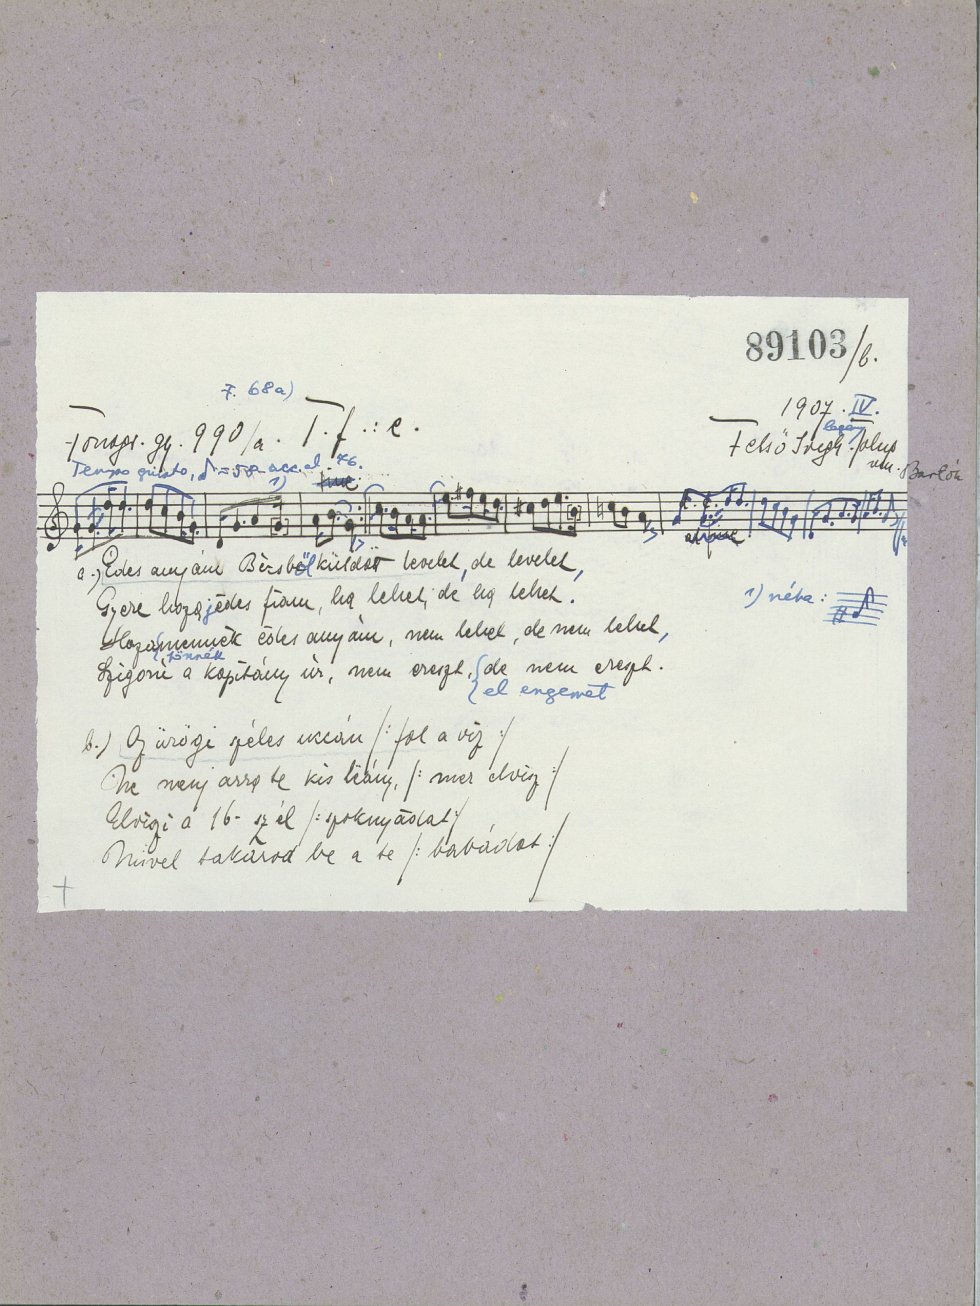 89103/b.
F. 68a)
Fonogr. gy. 990/a. T. f. :: c.
1907. IV.
Felső Iregh. Tolna
vm. Bartók
legény
Tempo giusto, ♩ = 58 acc. al 76.
1)
a.) Édes anyám Bécsből küldött levelet, de levelet,
Gyere haza jédes fiam, ha lehet, de ha lehet.
1) néha:
Hazamennék édes anyám, nem lehet, de nem lehet,
jönnék
Szigorú a kapitány úr, nem ereszt, de nem ereszt.
el engemet
b.) Az ürögi széles uccán /: fol a víz :/
Ne menj arra te kis lëány, /: mer elvisz :/
Elviszi a 16- szél /: szoknyádat :/
Mivel takarod be a te /: babádat :/